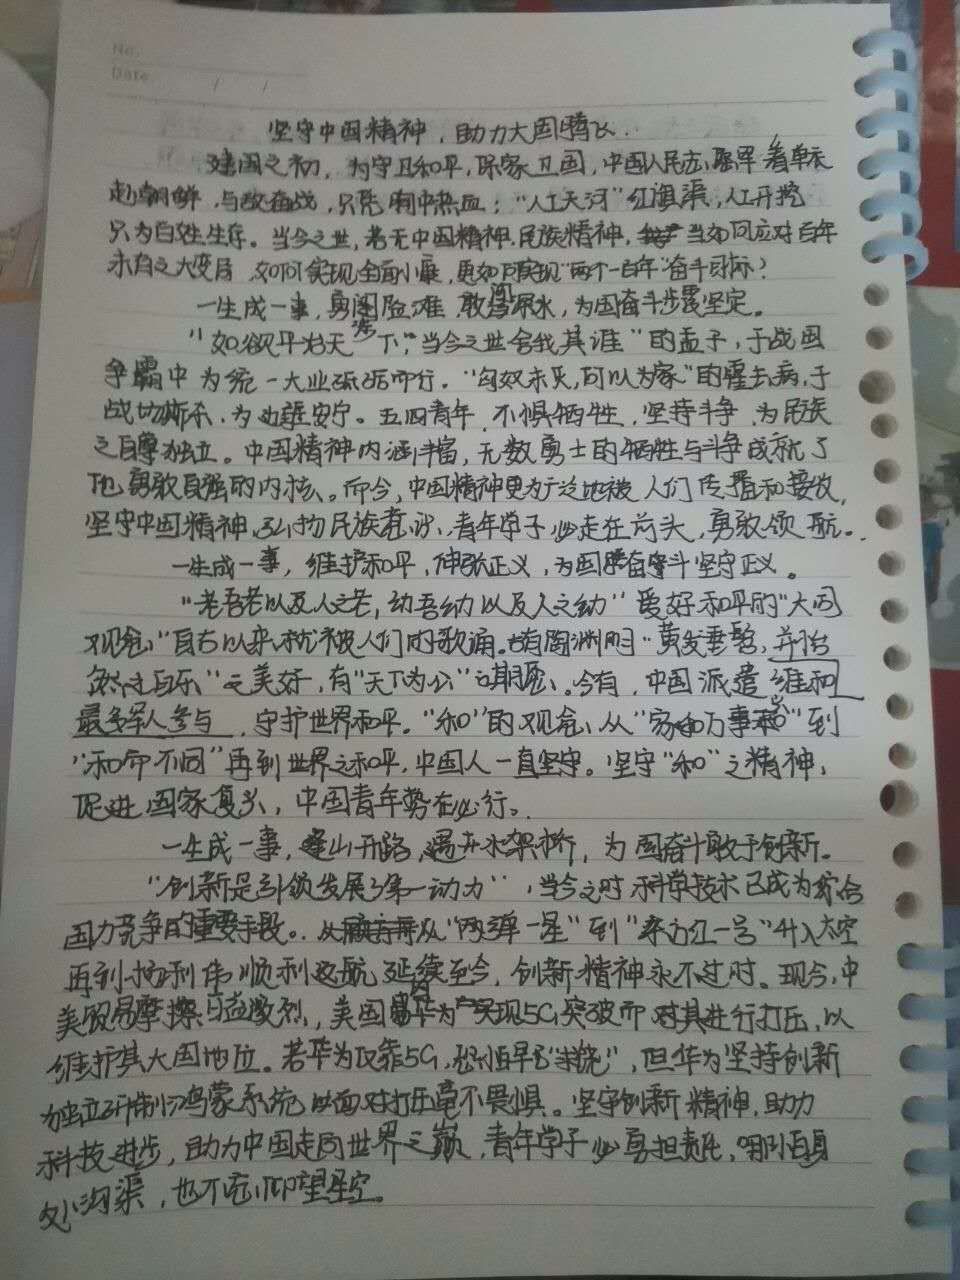 No.
Date / /
坚守中国精神，助力大国腾飞.
建国之初，为守卫和平，保家卫国，中国人民志愿军着单衣
赴朝鲜，与敌奋战，只凭胸中热血；"人工天河"红旗渠，人工开挖
只为百姓生存。当今之世，若无中国精神.民族精神，当如何应对百年
未有之大变局，如何实现全面小康，更如何实现"两个一百年"奋斗目标？
一生成一事，勇闯险滩，敢深水，为国奋斗步履坚定。
"如欲平治天下，当今之世舍我其谁"的孟子，于战国
争霸中为统一大业砥砺而行."匈奴未灭，何以为家"的霍去病，于
战场厮杀，为边疆安宁。五四青年，不惧牺牲，坚持斗争，为民族
之自尊独立。中国精神内涵丰富，无数勇士的牺牲与斗争成就了
他勇敢自强的内核。而今，中国精神更为广泛地被人们传播和接收，
坚守中国精神，弘扬民族意识，青年学子必走在前头，勇敢领航。
一生成一事，维护和平，伸张正义，为国奋斗坚守正义。
"老吾老以及人之老，幼吾幼以及人之幼"爱好和平的"大同
观念"自古以来就被人们所歌诵.古有陶渊明"黄发垂髫，并怡
然自乐"之美好，有"天下为公"之期愿、今有，中国派遣维和
最多军人参与，守护世界和平."和"的观念，从"家和万事"到
"和而不同"再到世界之和平，中国人一直坚守。坚守"和"之精神，
促进国家复兴，中国青年势在必行。
一生成一事，逢山开路，遇水架桥，为国奋斗敢于创新。
"创新是引领发展了第一动力"，当今之时科学技术已成为综合
国力竞争的重要手段。从"两弹一星"到"东方红一号"升入太空
再到顺利返航延续至今，创新精神永不过时。现今，中
美贸易摩擦日益激烈，美国因华为实现5G突破而对其进行打压，以
维护其大国地位。若华为仅靠5G，恐怕早已，但华为坚持创新
独立研制鸿蒙系统以面对打压毫不畏惧。坚守创新精神，助力
科技进步，助力中国走向世界之巅，青年学子必勇担责任，哪怕自身
处沟渠，也不忘仰望星空。